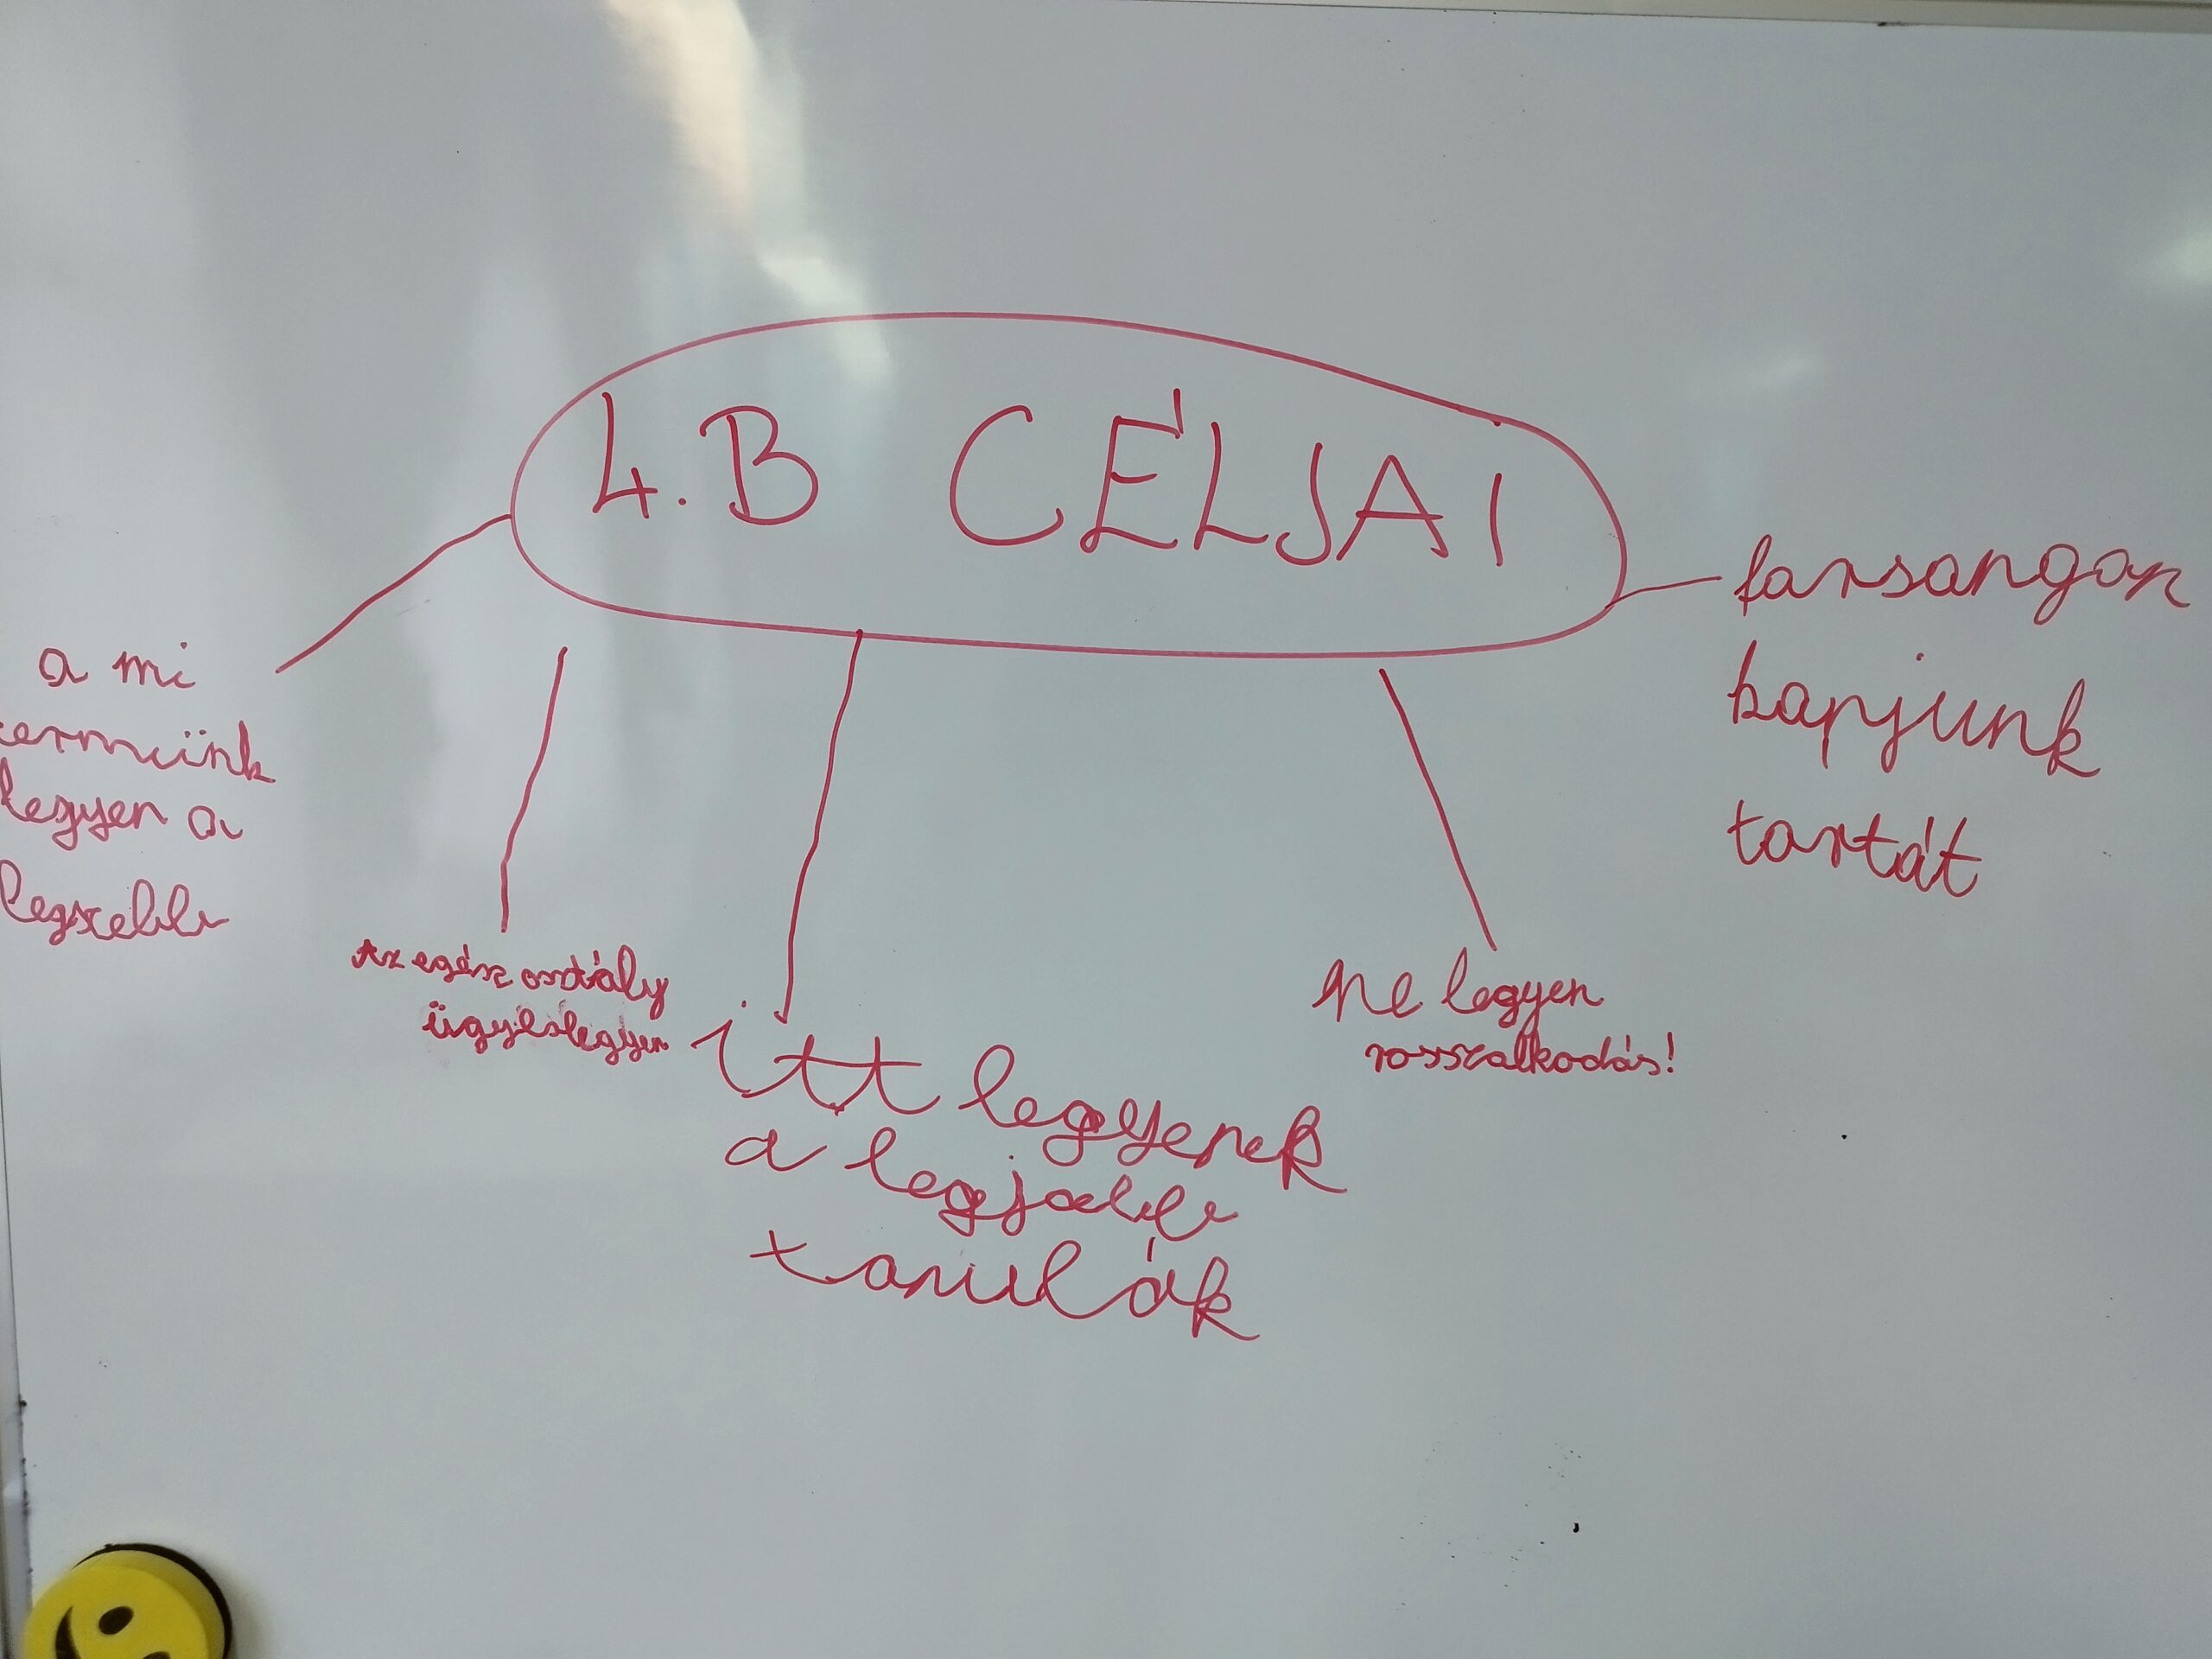 4.B CÉLJAI
a mi
termünk
legyen a
legszebb
Az egész osztály
ügyes legyen
itt legyenek
a legjobb
tanulók
Ne legyen
rosszalkodás!
farsangon
kapjunk
tortát